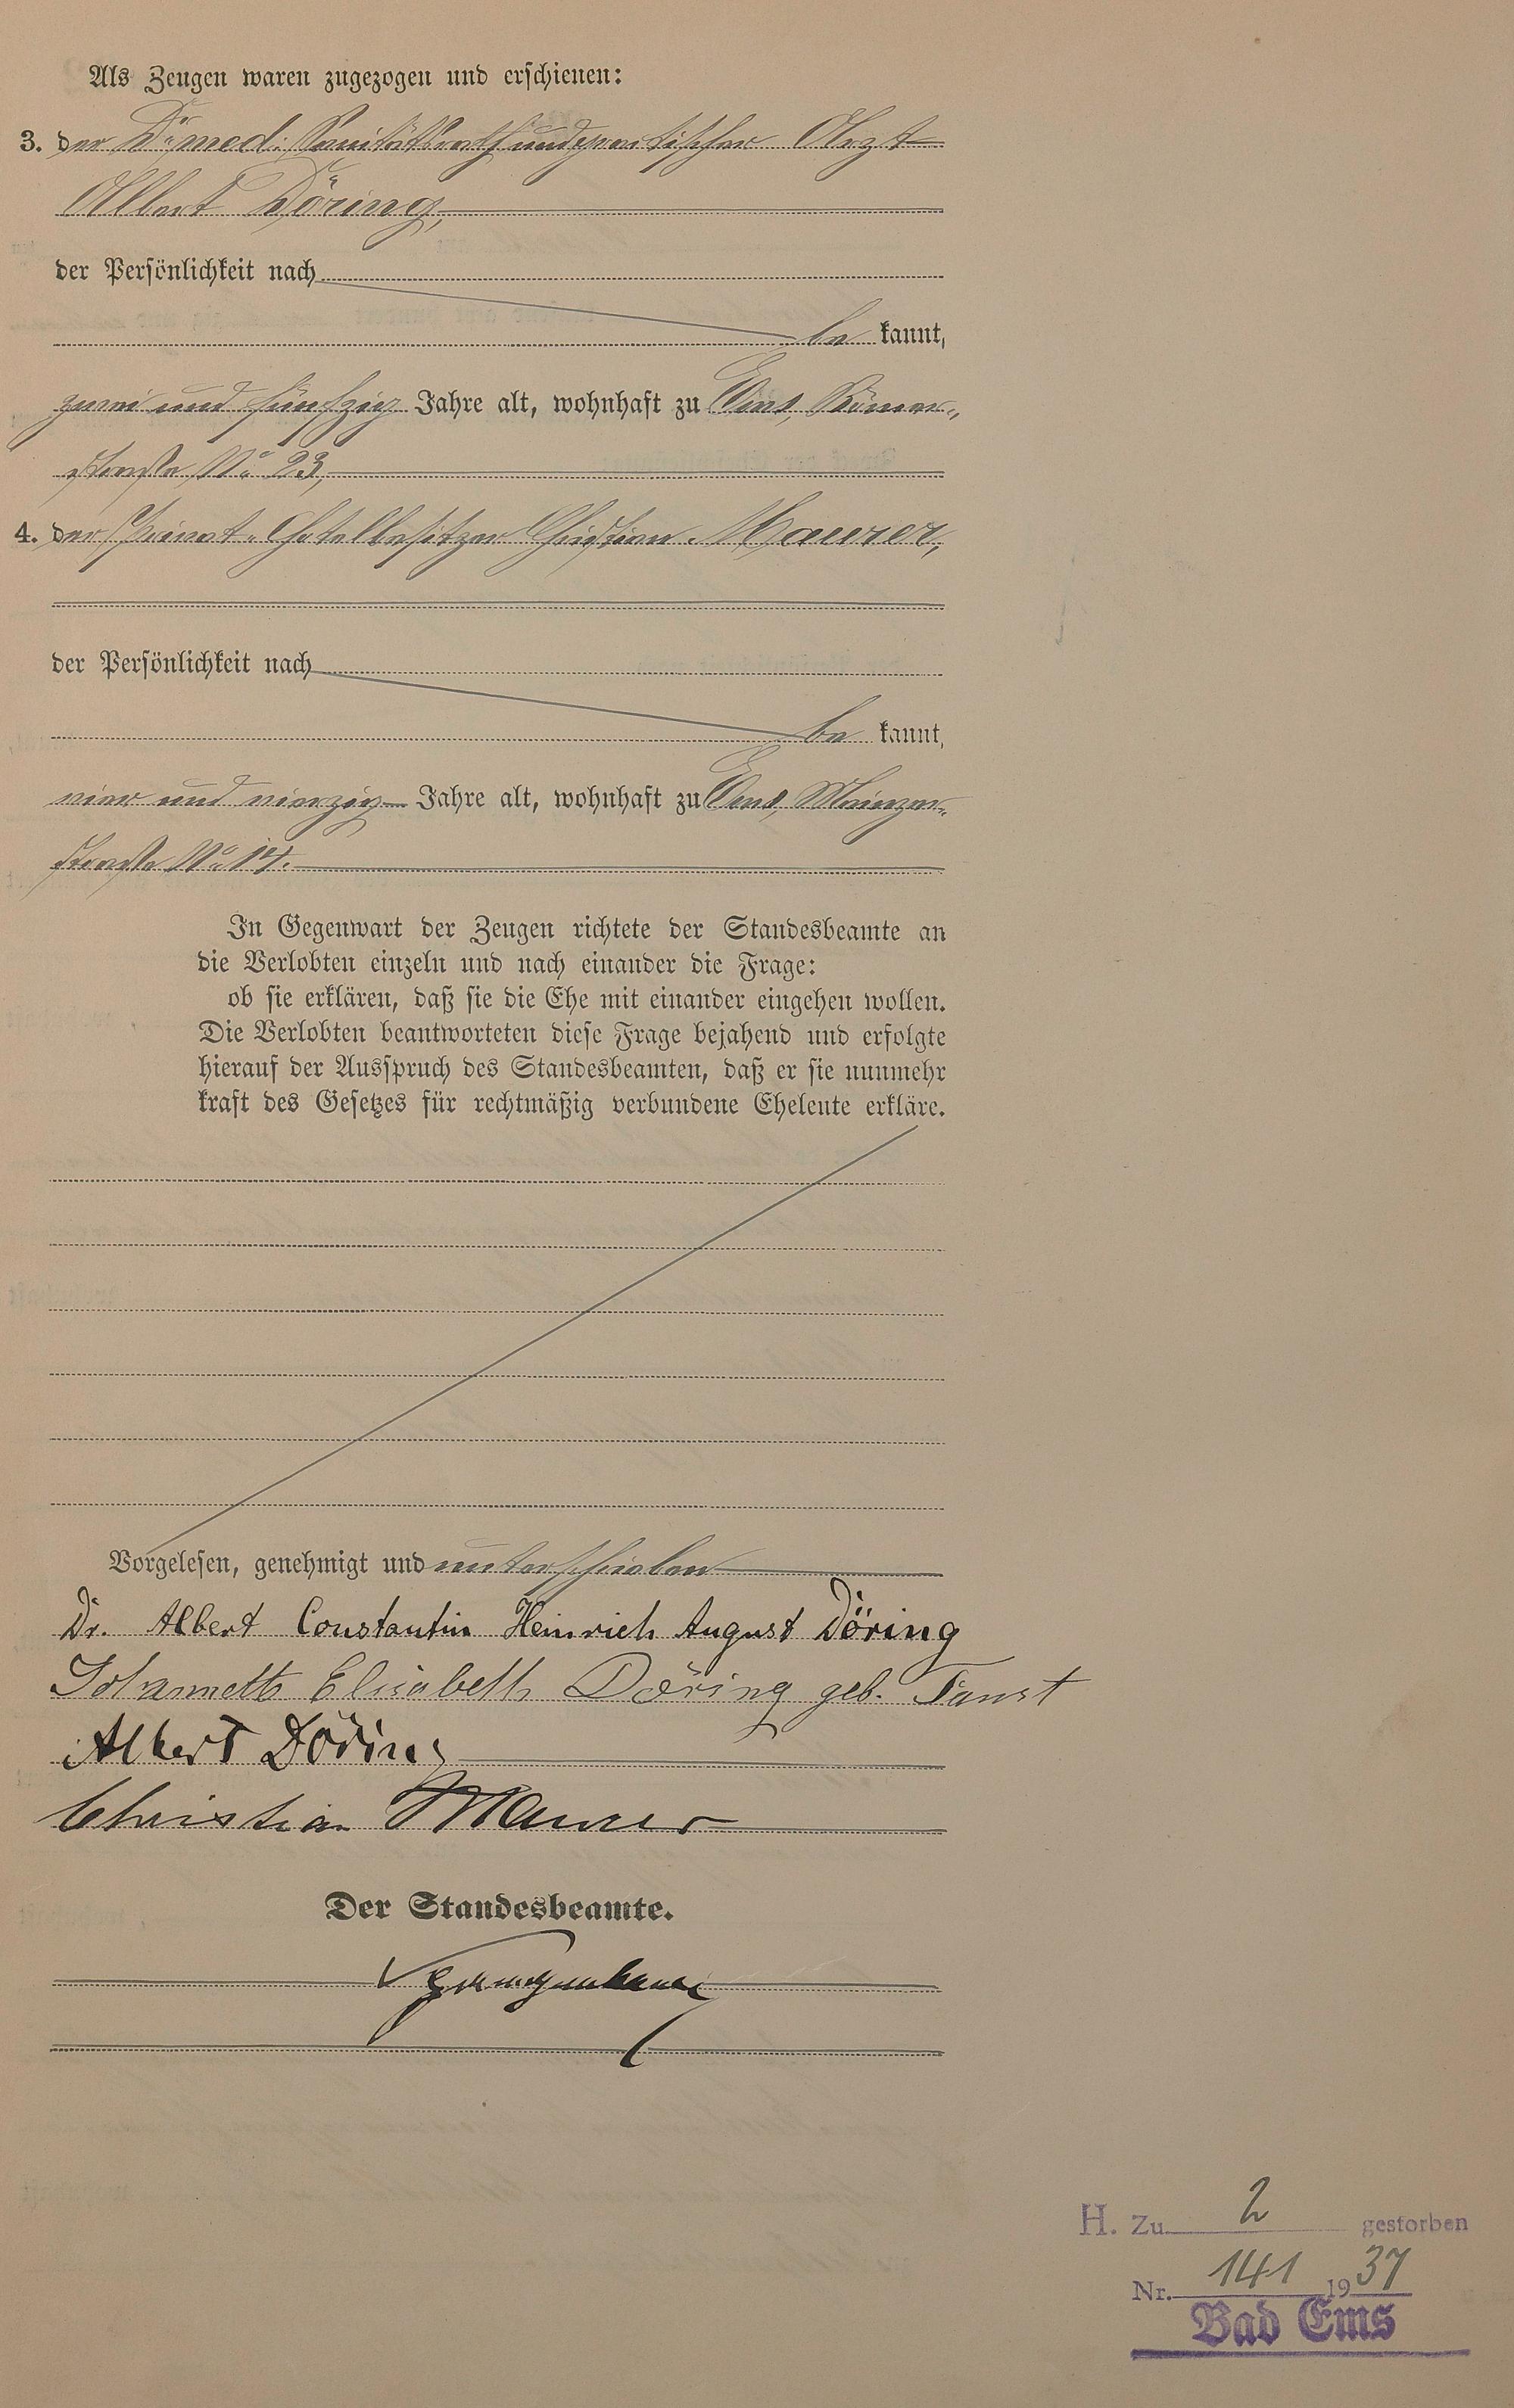 Als Zeugen waren zugezogen und erschienen:
3. der Dr med: Sanitätsrath und practischer Arzt
Albert Döring,
der Persönlichkeit nach
be kannt,
zwei und fünfzig Jahre alt, wohnhaft zu Ems, Römer-
straße No 23,
4. der Privat-Hotelbesitzer Christian Maurer,
der Persönlichkeit nach
be kannt,
vier und vierzig Jahre alt, wohnhaft zu Ems, Mainzer-
straße No 14.
In Gegenwart der Zeugen richtete der Standesbeamte an
die Verlobten einzeln und nach einander die Frage:
ob sie erklären, daß sie die Ehe mit einander eingehen wollen.
Die Verlobten beantworteten diese Frage bejahend und erfolgte
hierauf der Ausspruch des Standesbeamten, daß er sie nunmehr
kraft des Gesetzes für rechtmäßig verbundene Eheleute erkläre.
Vorgelesen, genehmigt und unterschrieben
Dr. Albert Constantin Heinrich August Döring
Johannette Elisabeth Döring geb. Faust
Albert Döring
Christian Maurer
Der Standesbeamte.
H. Zu 2 gestorben
Nr. 141 1937
Bad Ems